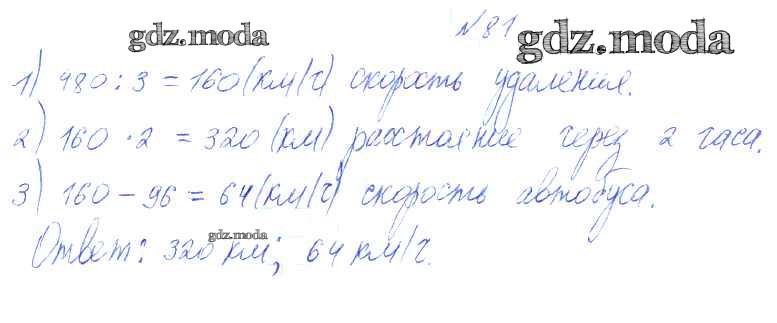 № 81
gdz.moda gdz.moda
1) 480 : 3 = 160 (км/ч) скорость удаления.
2) 160 · 2 = 320 (км) расстояние через 2 часа.
3) 160 – 96 = 64 (км/ч) скорость автобуса.
gdz.moda
Ответ: 320 км; 64 км/ч.